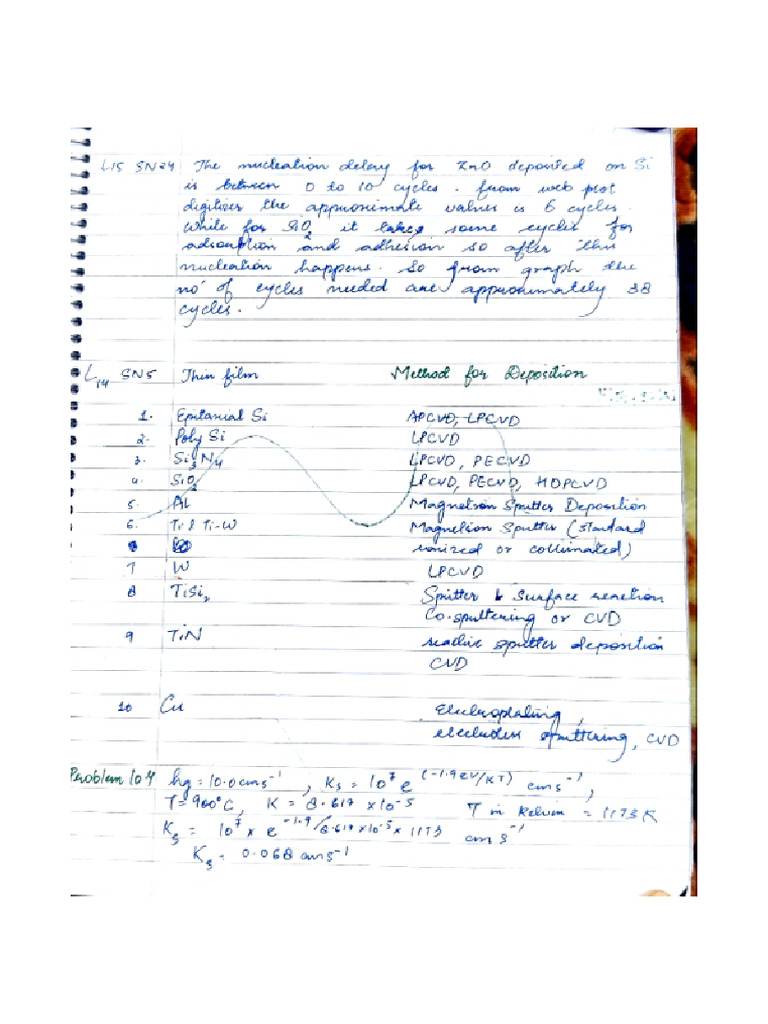 L15 SN24 The nucleation delay for ZnO deposited on Si
is between 0 to 10 cycles. from web plot
digitizer the approximate values is 6 cycles.
While for SiO2 it takes some cycles for
adsorption and adhesion so after this
nucleation happens. So from graph the
no of cycles needed are approximately 38
cycles.
L14 SN5 Thin film Method for Deposition
1. Epitaxial Si APCVD, LPCVD
2. Poly Si LPCVD
3. Si3N4 LPCVD, PECVD
4. SiO2 LPCVD, PECVD, HDPCVD
5. Al Magnetron Sputter Deposition
6. Ti & Ti-W Magnetron Sputter (standard
ionized or collimated)
7 W LPCVD
8 TiSi2 Sputter & Surface reaction
Co-sputtering or CVD
9 TiN reactive sputter deposition
CVD
10 Cu Electroplating,
electroless sputtering, CVD
Problem 10.4 hg = 10.0 cm s-1, Ks = 10^7 e^(-1.9eV/KT) cm s-1,
T = 900°C, K = 8.617 x10-5 T in Kelvin = 1173 K
Ks = 10^7 x e^-1.9/8.617x10-5x1173 cm s-1
Ks = 0.068 cm s-1